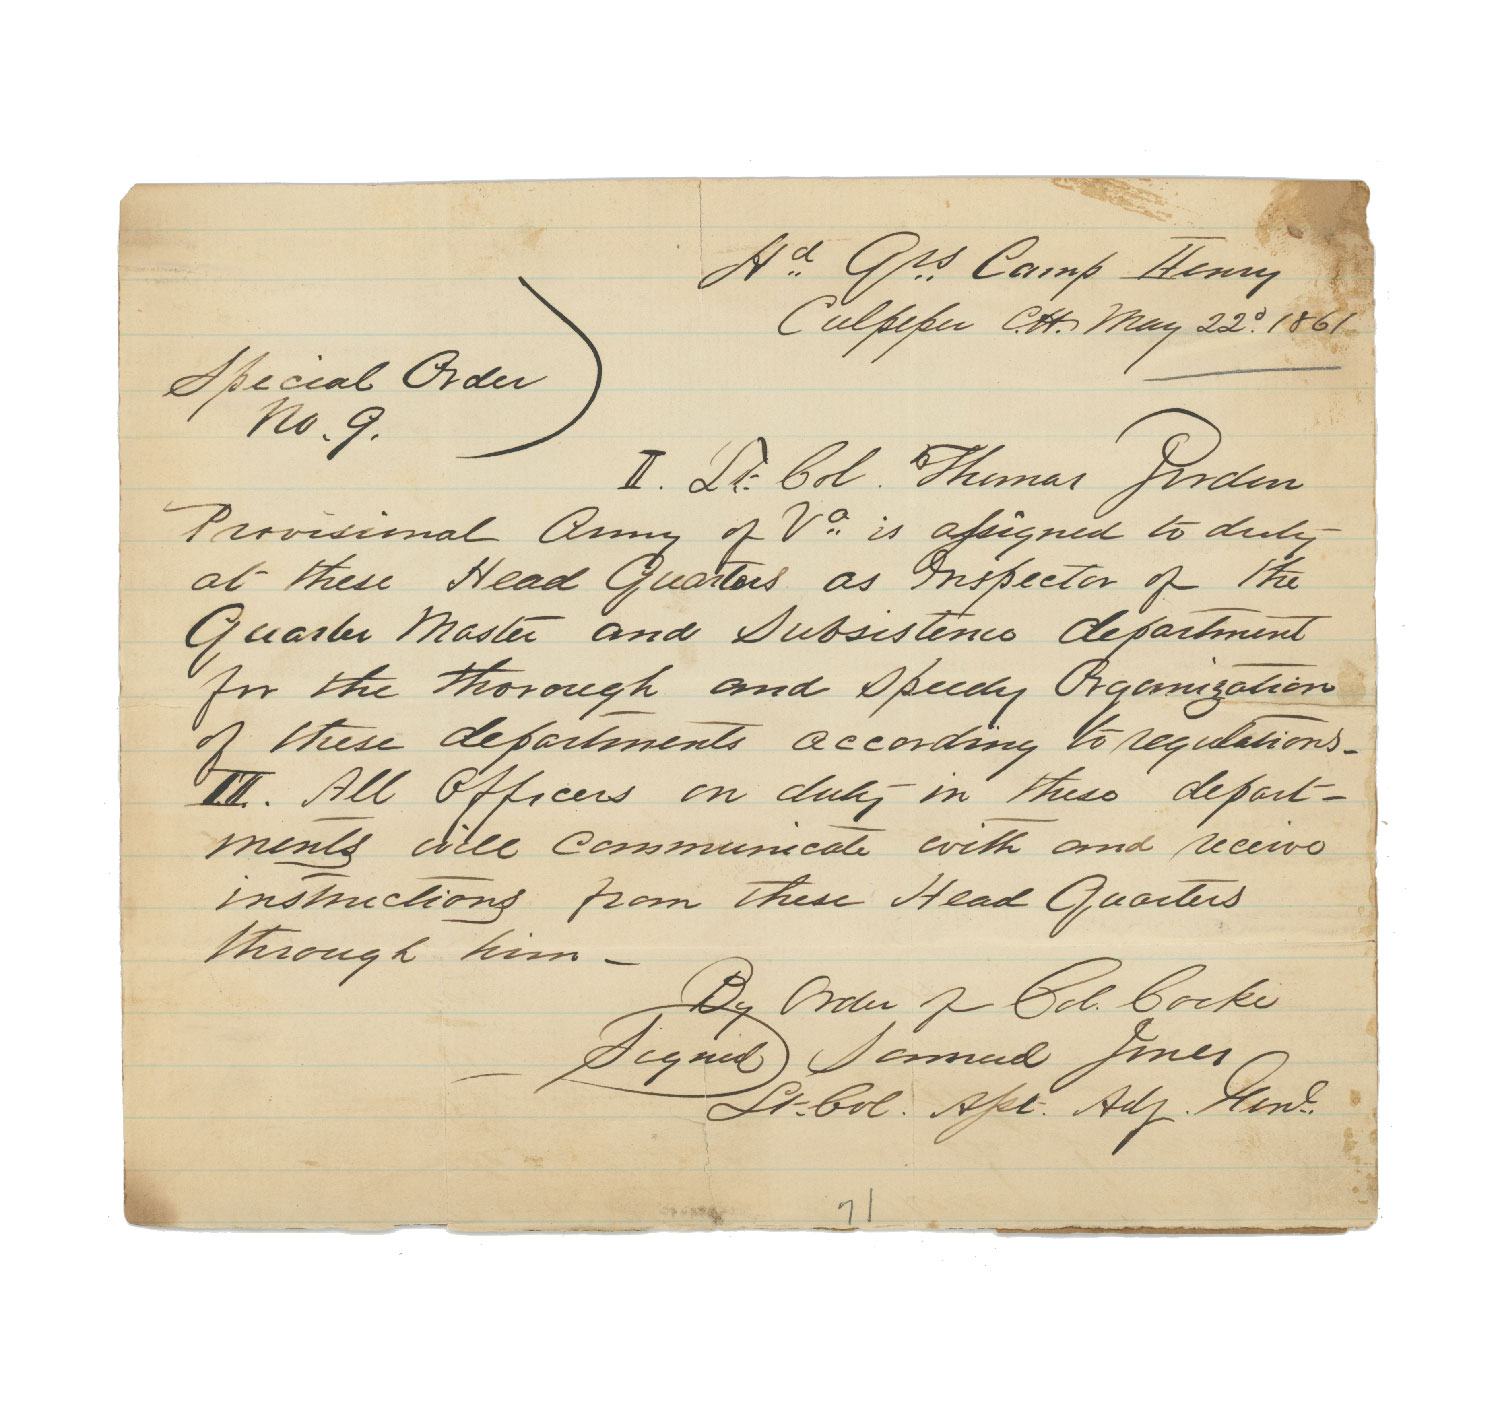 Hd Qrs Camp Henry
Culpeper C.H. May 22d. 1861
Special Order
No. 9.
II. Lt. Col. Thomas Jordan
Provisional Army of Va. is assigned to duty
at these Head Quarters as Inspector of the
Quarter Master and Subsistence department
for the thorough and speedy Organization
of these departments according to regulations–
III. All Officers on duty in these depart–
ments will communicate with and receive
instructions from these Head Quarters
through him –
By Order of Col. Cocke
Signed Samuel Jones
Lt. Col. Asst. Adj. Genl.
71